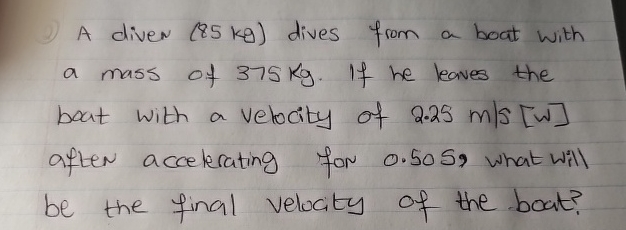 A diver (85 kg) dives from a boat with
a mass of 375 Kg. If he leaves the
boat with a velocity of 2.25 m/s [W]
after accelerating for 0.50 s, what will
be the final velocity of the boat?